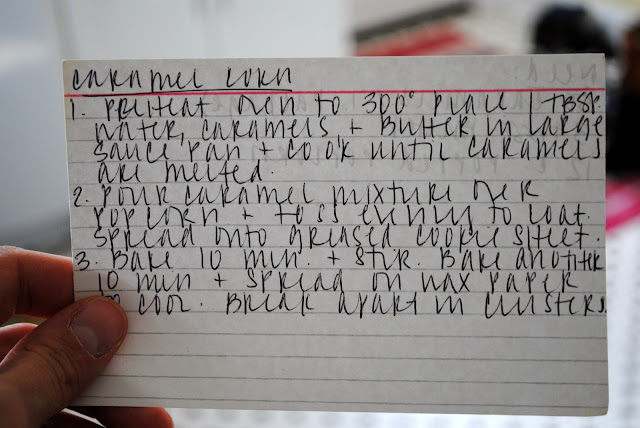 caramel corn
1. preheat oven to 300° place 1 TBSP
water, caramels + butter in large
sauce pan + cook until caramels
are melted.
2. pour caramel mixture over
popcorn + toss evenly to coat.
spread onto greased cookie sheet.
3. Bake 10 min. + stir. Bake another
10 min + spread on wax paper
to cool. Break apart in clusters.